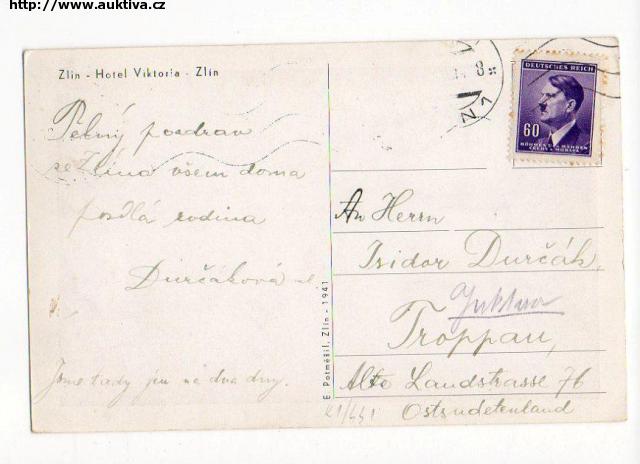 http://www.auktiva.cz
Zlín - Hotel Viktoria - Zlín
Pěkný pozdrav
ze Zlína všem doma
posílá rodina
Durčáková
Jsme tady jen na dva dny.
E. Potměšil, Zlín - 1941
DEUTSCHES REICH
60
BÖHMEN U. MÄHREN
ČECHY A MORAVA
An Herrn
Isidor Durčák,
Troppau,
Alte Landstrasse 76
Ostsudetenland